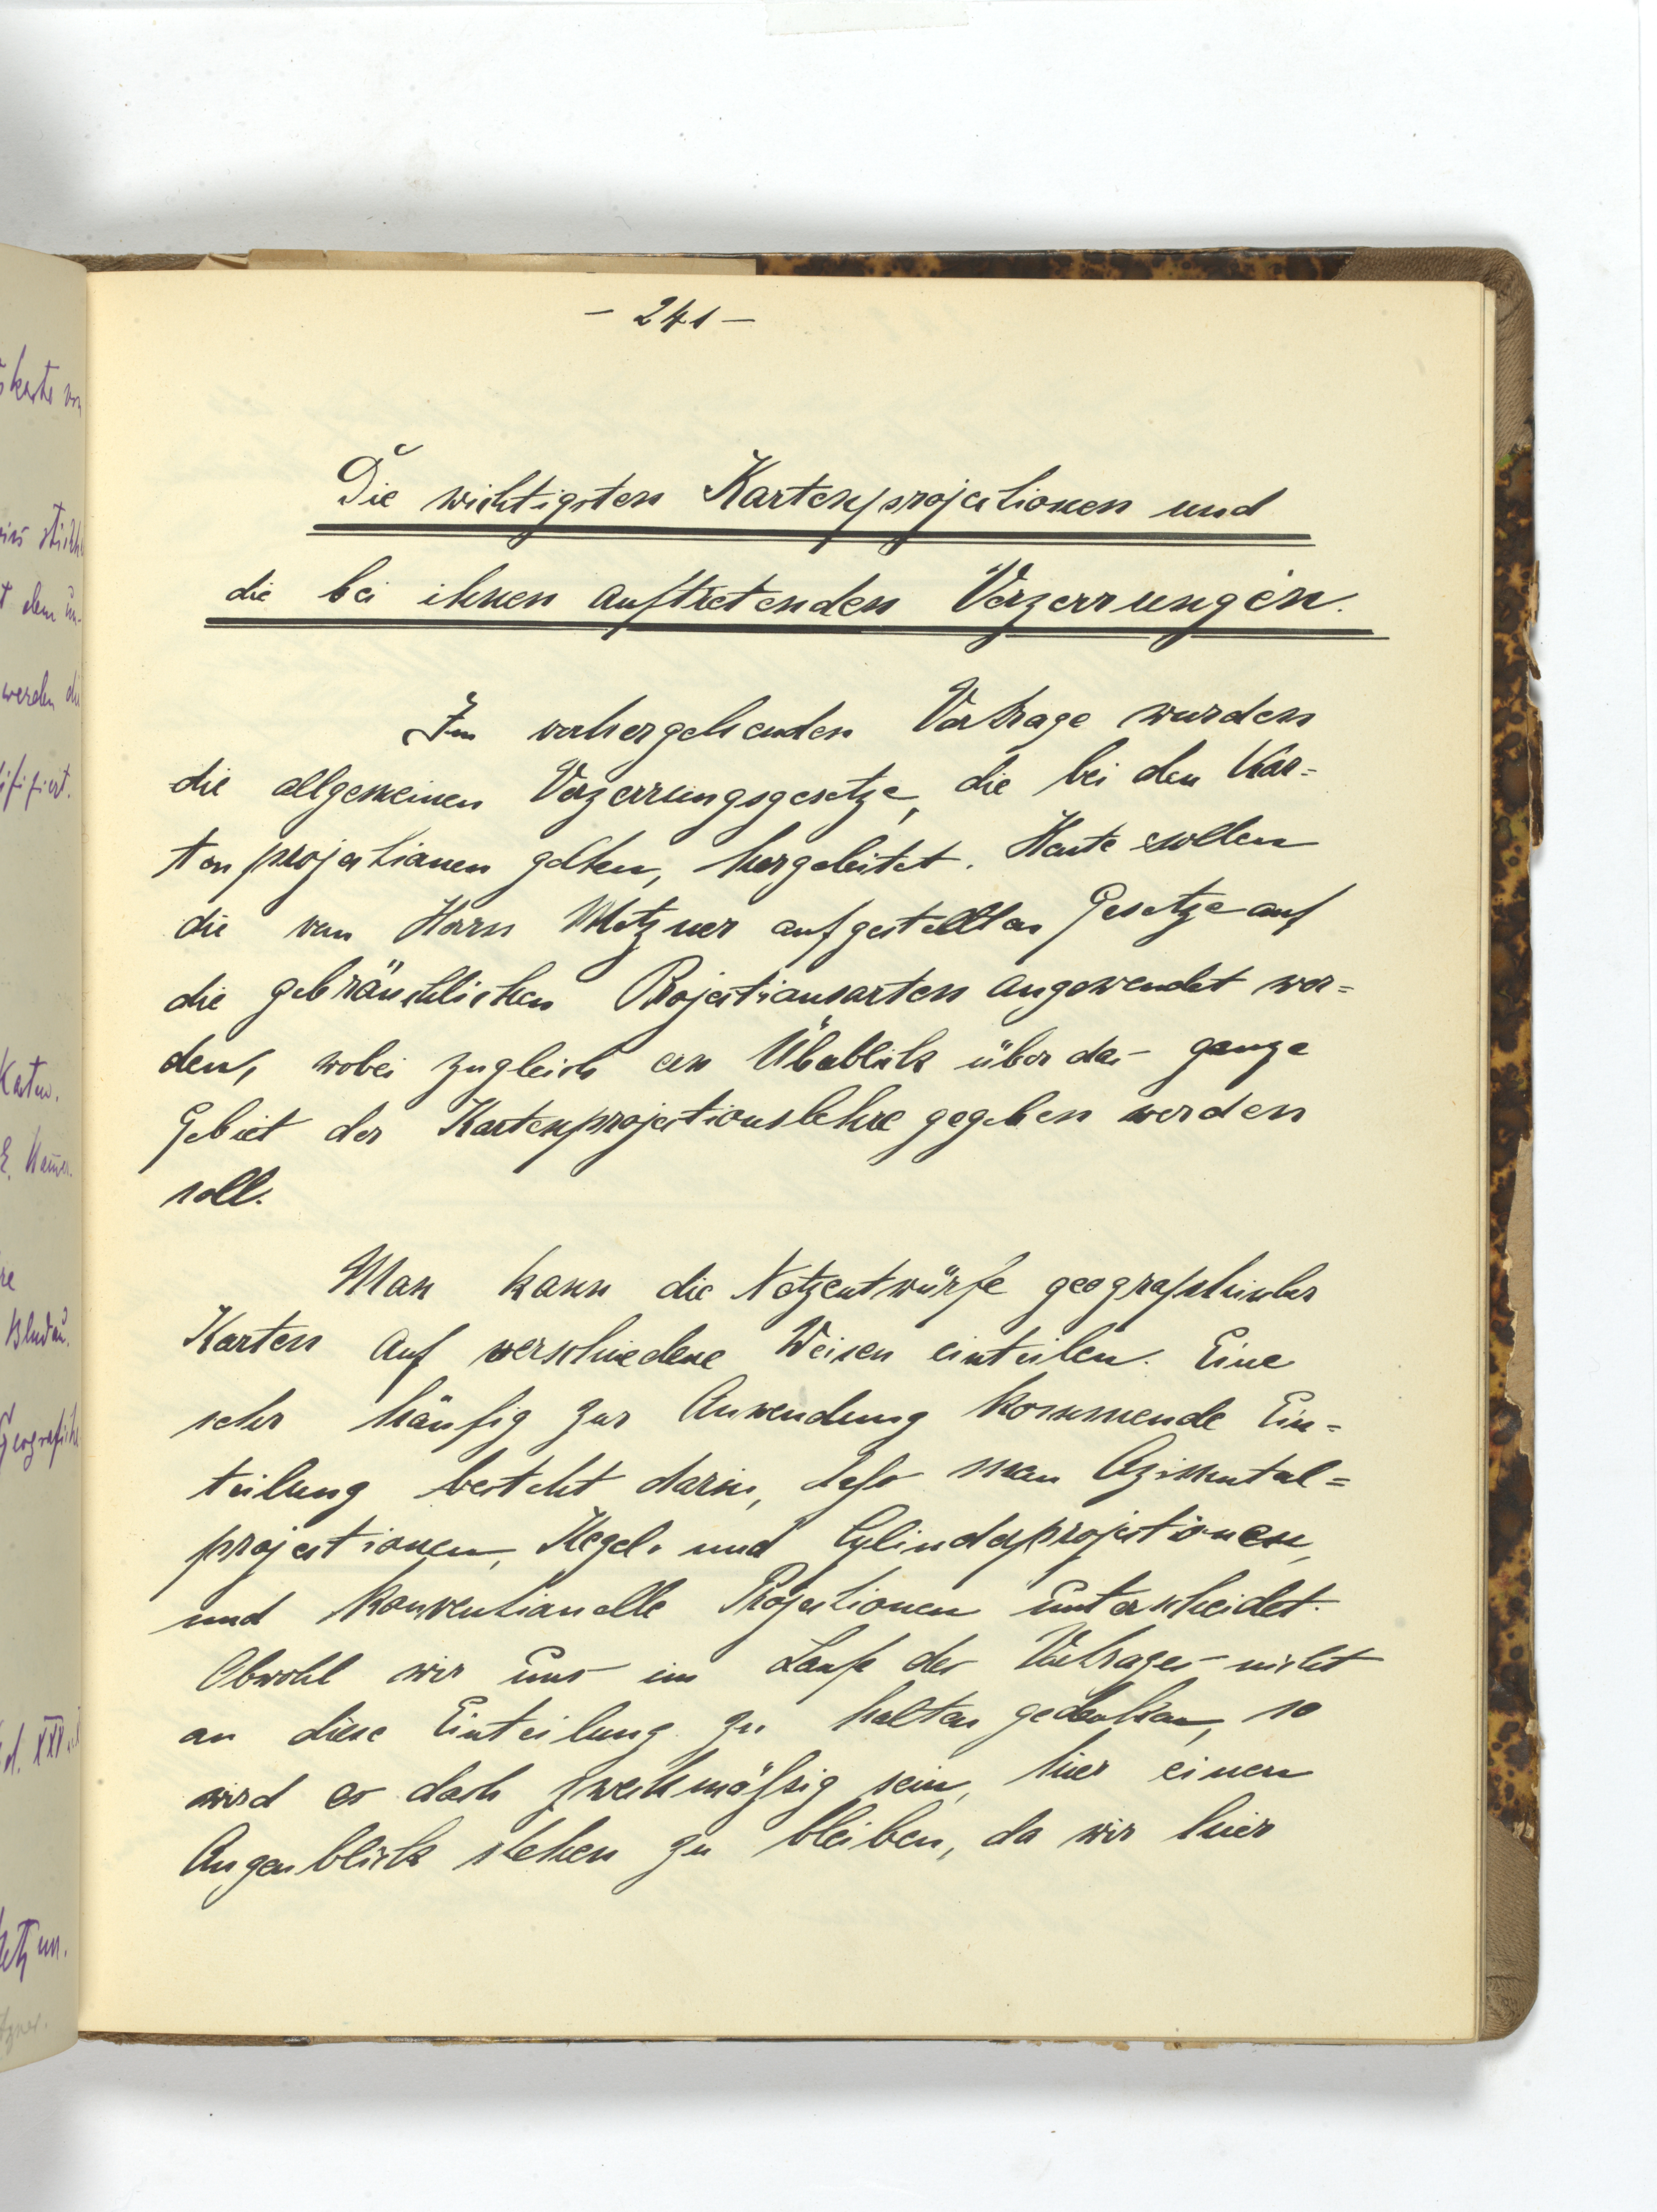 - 241 -
Die wichtigsten Kartenprojectionen und
die bei ihnen auftretenden Verzerrungen.
Im vorhergehenden Vortrage wurden
die allgemeinen Verzerrungsgesetze, die bei den Kar=
tenprojectionen gelten, hergeleitet. Heute sollen
die von Herrn Metzner aufgestellten Gesetze auf
die gebräuchlichen Projectionsarten angewendet wer=
den, wobei zugleich ein Überblick über das ganze
Gebiet der Kartenprojectionslehre gegeben werden
soll.
Man kann die Netzentwürfe geographischer
Karten auf verschiedene Weisen einteilen. Eine
sehr häufig zur Anwendung kommende Ein=
teilung besteht darin, daß man Azimutal=
projectionen, Kegel- und Cylinderprojectionen,
und konventionelle Projectionen unterscheidet.
Obwohl wir uns im Laufe des Vortrages nicht
an diese Einteilung zu halten gedenken, so
wird es doch zweckmäßig sein, hier einen
Augenblick stehen zu bleiben, da wir hier
werden
Katen.
Bludau.